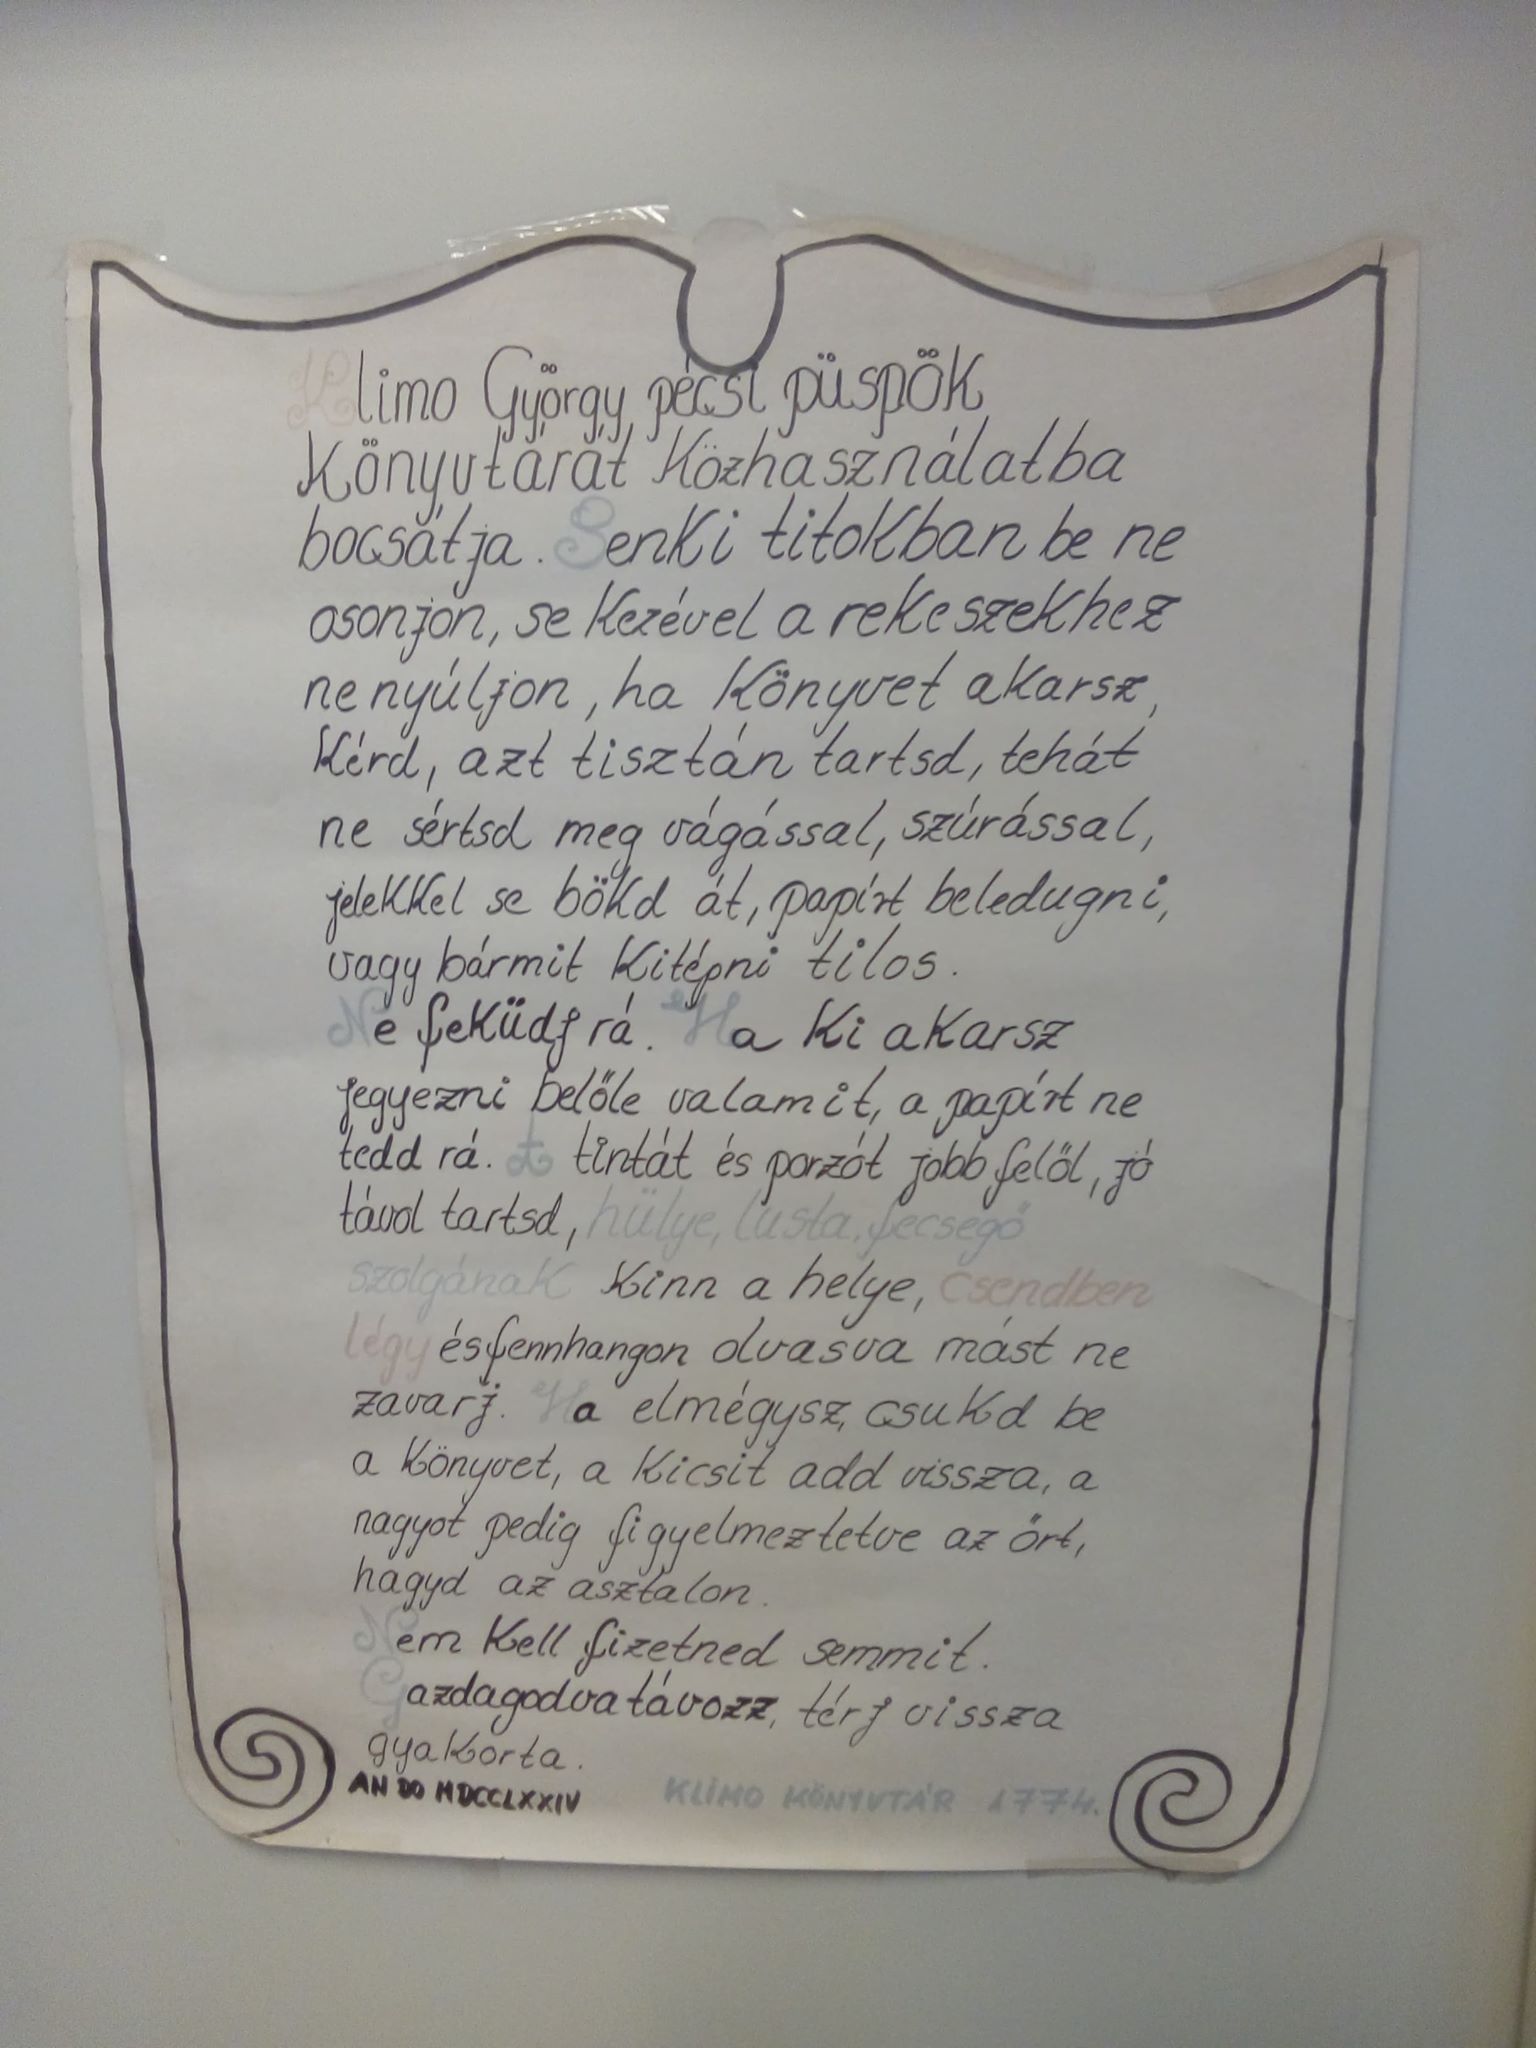 Klimo György pécsi püspök
Könyvtárát Közhasználatba
bocsátja. Senki titokban be ne
osonjon, se kezével a rekeszekhez
ne nyúljon, ha Könyvet akarsz,
Kérd, azt tisztán tartsd, tehát
ne sértsd meg vágással, szúrással,
jelekkel se bökd át, papírt beledugni,
vagy bármit kitépni tilos.
Ne feküdj rá. Ha ki akarsz
jegyezni belőle valamit, a papírt ne
tedd rá. A tintát és porzót jobb felől, jó
távol tartsd, hülye, lusta, fecsegő
szolgának kinn a helye, csendben
légy és fennhangon olvasva mást ne
zavarj. Ha elmégysz, csukd be
a könyvet, a kicsit add vissza, a
nagyot pedig figyelmeztetve az őrt,
hagyd az asztalon.
Nem kell fizetned semmit.
Gazdagodva távozz, térj vissza
gyakorta.
AN DO MDCCLXXIV KLIMO KÖNYVTÁR 1774.